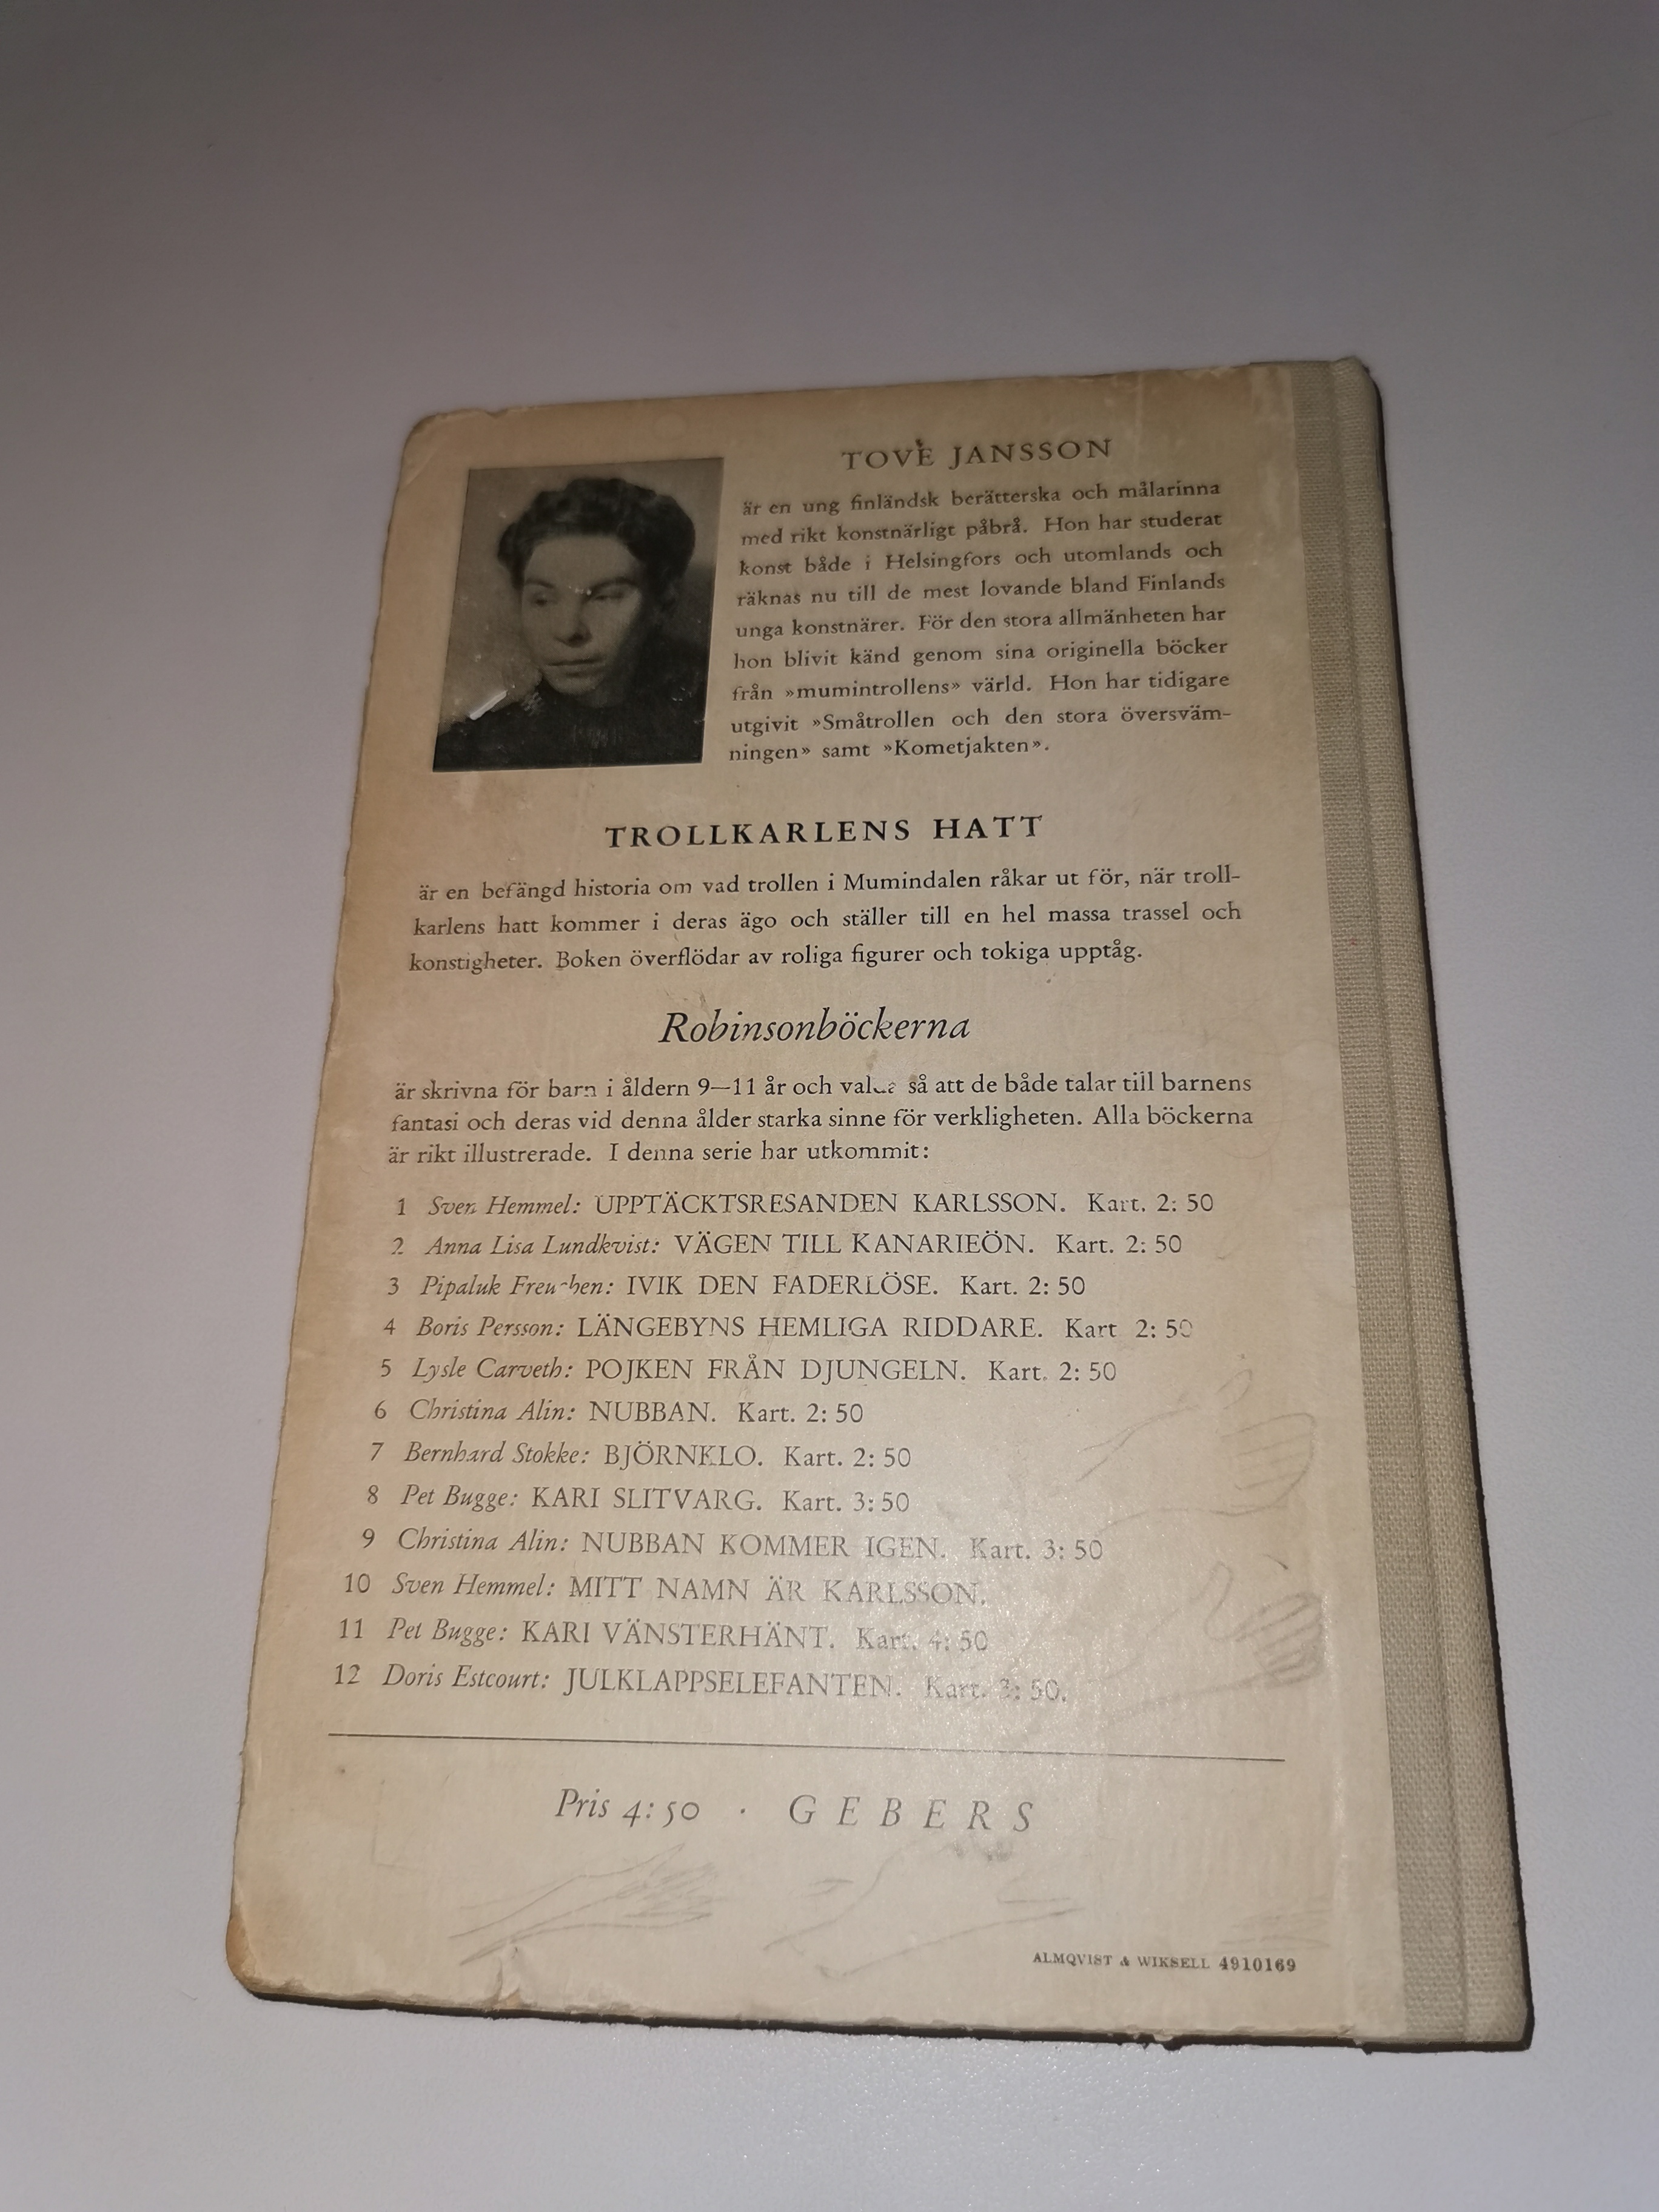 TOVE JANSSON
är en ung finländsk berätterska och målarinna
med rikt konstnärligt påbrå. Hon har studerat
konst både i Helsingfors och utomlands och
räknas nu till de mest lovande bland Finlands
unga konstnärer. För den stora allmänheten har
hon blivit känd genom sina originella böcker
från »mumintrollens» värld. Hon har tidigare
utgivit »Småtrollen och den stora översväm-
ningen» samt »Kometjakten».
TROLLKARLENS HATT
är en befängd historia om vad trollen i Mumindalen råkar ut för, när troll-
karlens hatt kommer i deras ägo och ställer till en hel massa trassel och
konstigheter. Boken överflödar av roliga figurer och tokiga upptåg.
Robinsonböckerna
är skrivna för barn i åldern 9—11 år och valda så att de både talar till barnens
fantasi och deras vid denna ålder starka sinne för verkligheten. Alla böckerna
är rikt illustrerade. I denna serie har utkommit:
1 Sven Hemmel: UPPTÄCKTSRESANDEN KARLSSON. Kart. 2: 50
2 Anna Lisa Lundkvist: VÄGEN TILL KANARIEÖN. Kart. 2: 50
3 Pipaluk Freuchen: IVIK DEN FADERLÖSE. Kart. 2: 50
4 Boris Persson: LÄNGEBYNS HEMLIGA RIDDARE. Kart 2: 50
5 Lysle Carveth: POJKEN FRÅN DJUNGELN. Kart. 2: 50
6 Christina Alin: NUBBAN. Kart. 2: 50
7 Bernhard Stokke: BJÖRNKLO. Kart. 2: 50
8 Pet Bugge: KARI SLITVARG. Kart. 3: 50
9 Christina Alin: NUBBAN KOMMER IGEN. Kart. 3: 50
10 Sven Hemmel: MITT NAMN ÄR KARLSSON.
11 Pet Bugge: KARI VÄNSTERHÄNT. Kart. 4: 50
12 Doris Estcourt: JULKLAPPSELEFANTEN. Kart. 3: 50.
Pris 4: 50 · GEBERS
ALMQVIST & WIKSELL 4910169